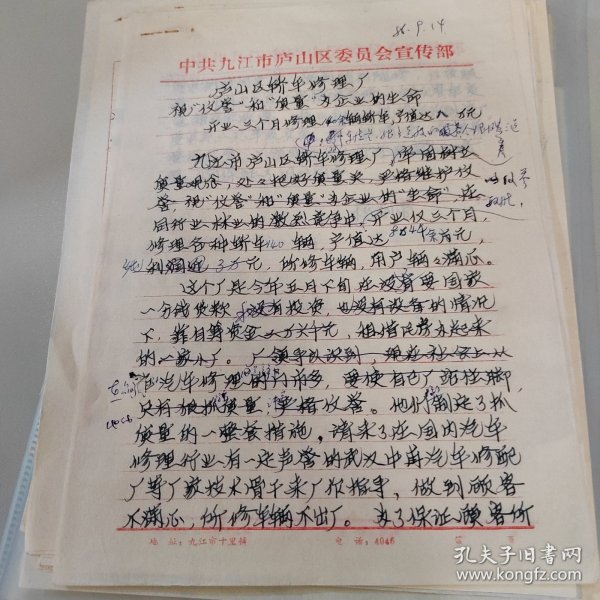 86.9.14
中共九江市庐山区委员会宣传部
庐山区轿车修理厂
视“仪誉”和“质量”为企业的生命
开业三个月修理 辆轿车产值达八万元
九江市庐山区轿车修理厂,牢固树立
质量观念,处处把好质量关,严格维护仪
誉,视“仪誉”和“质量”为企业的“生命”,在
同行业林业的激烈竞争中,开业仅三个月,
修理各种轿车140辆,产值达 余万元,
纯利润近3万元,所修车辆,用户辆辆满意。
这个厂是今年五月下旬在没有要国家
一分钱贷款,没有投资,也没有设备的情况
下,靠自筹资金 万 千元,租借民房办起来
的一家小厂。厂领导认识到,现在社会上从
在汽车修理的门前多,要使自己厂站住脚,
只有狠抓质量,严格仪誉。他们制定了抓
质量的一整套措施。请来了在国内汽车
修理行业有一定声誉的武汉中南汽车修配
厂等厂家技术骨干来厂作指导,做到顾客
不满意,所修车辆不出厂。为了保证顾客所
地址:九江市十里铺
电话:4046
第 页
孔夫子旧书网
www.kongfz.com